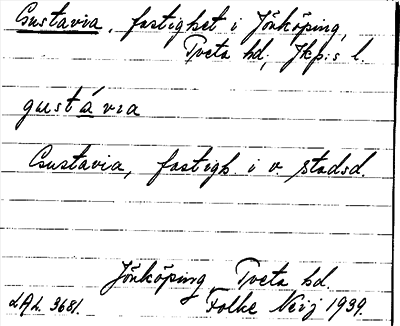 Gustavia, fastighet i Jönköping,
Tveta hd, Jkp:s l.
gustávia
Gustavia, fastigh. i v. stadsd.
Jönköping Tveta hd.
LAL. 3681. Folke Neij 1939.